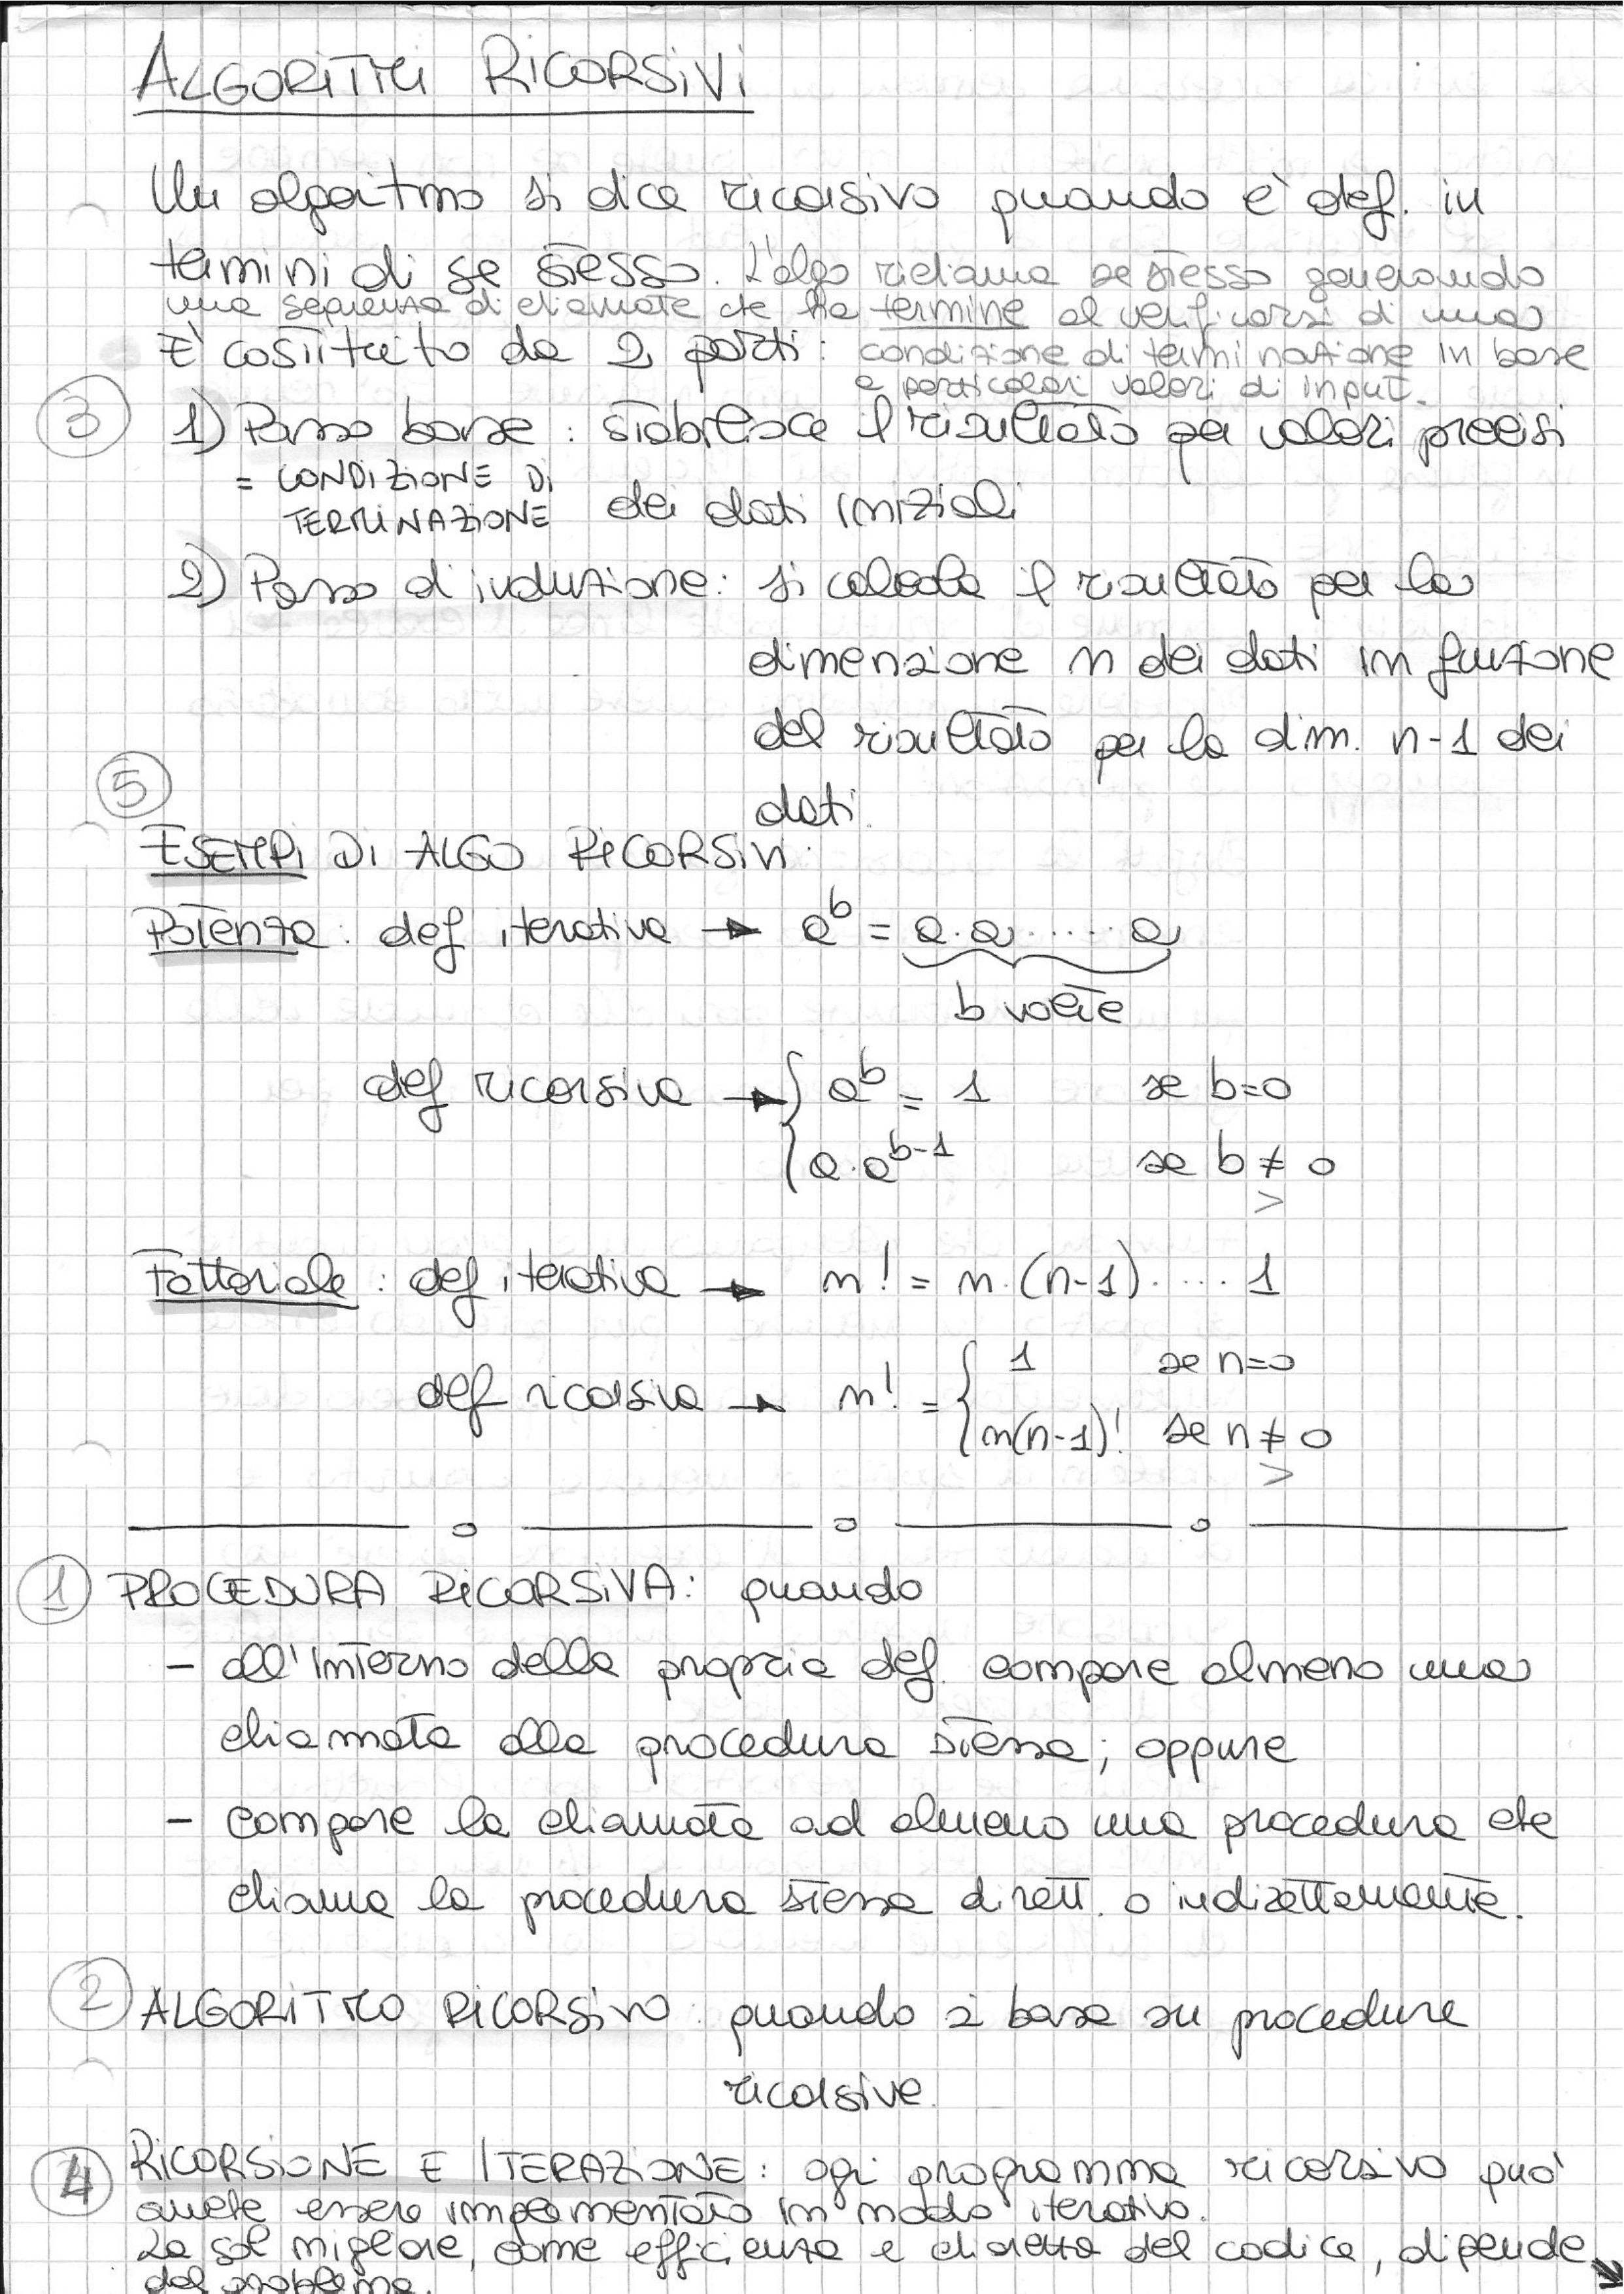 ALGORITMI RICORSIVI
Un algoritmo si dice ricorsivo quando è def. in
termini di se stesso. L'algo richiama se stesso generando
una sequenza di chiamate che ha termine al verificarsi di una
È costituito da 2 parti: condizione di terminazione in base
a particolari valori di input.
③ 1) Passo base: stabilisce il risultato per valori precisi
= CONDIZIONE DI
TERMINAZIONE dei dati iniziali
2) Passo d'induzione: si calcola il risultato per la
dimensione n dei dati in funzione
del risultato per la dim. n-1 dei
⑤
dati.
ESEMPI DI ALGO RICORSIVI:
Potenza: def iterativa → a^b = a·a·.....a
b volte
def ricorsiva → { a^b = 1 se b=0
a·a^(b-1) se b ≠ 0
>
Fattoriale: def iterativa → n! = n·(n-1)·....1
def ricorsiva → n! = { 1 se n=0
n(n-1)! se n ≠ 0
>
① PROCEDURA RICORSIVA: quando
- all'interno della propria def. compare almeno una
chiamata alla procedura stessa; oppure
- compare la chiamata ad almeno una procedura che
chiama la procedura stessa dirett. o indirettamente.
② ALGORITMO RICORSIVO: quando si basa su procedure
ricorsive.
④ RICORSIONE E ITERAZIONE: ogni programma ricorsivo può
anche essere implementato in modo iterativo.
La sol migliore, come efficienza e chiarezza del codice, dipende
dal problema.